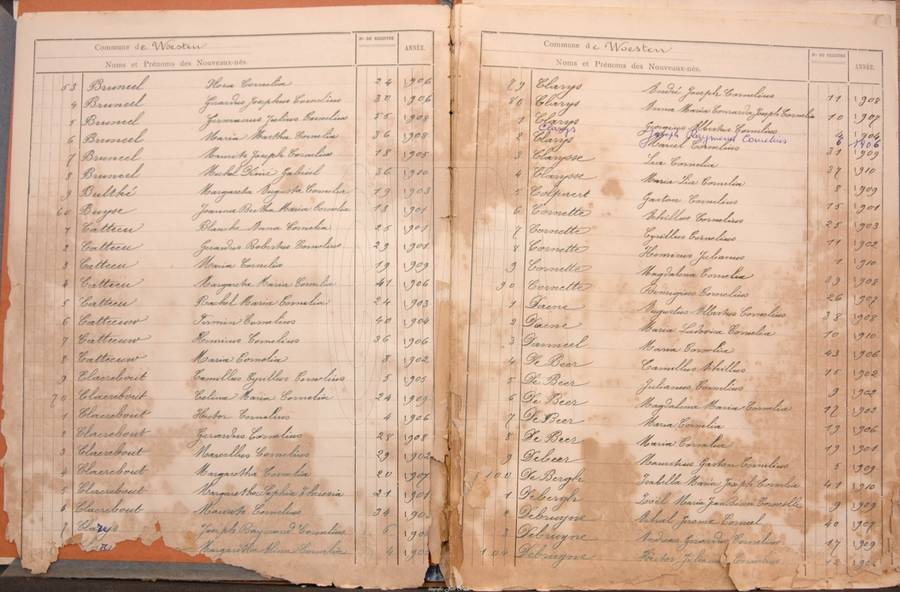 Commune de Woesten
Nos DE REGISTRE
ANNÉE.
Noms et Prénoms des Nouveaux-nés.
53 Bruneel Flora Cornelia 24 1906
4 Bruneel Gerardus Josephus Cornelius 30 1906
5 Bruneel Germanus Julius Cornelius 35 1908
6 Bruneel Maria Martha Cornelia 36 1908
7 Bruneel Maurits Joseph Cornelius 18 1905
8 Bruneel Michel Gabriel 36 1910
9 Bulthé Margareta Augusta Cornelia 19 1903
60 Buyse Joanna Bertha Maria Cornelia 13 1901
1 Catteeu Blanche Anna Cornelia 25 1901
2 Catteeu Gerardus Robertus Cornelius 29 1901
3 Catteeu Maria Cornelia 19 1909
4 Catteeu Margareta Maria Cornelia 41 1906
5 Catteeu Rachel Maria Cornelia 24 1903
6 Catteeuw Firmin Cornelius 40 1904
7 Catteeuw Henricus Cornelius 36 1906
8 Catteeuw Maria Cornelia 8 1902
9 Claerebout Camillus Cyrillus Cornelius 5 1905
70 Claerebout Celina Maria Cornelia 24 1909
1 Claerebout Hector Cornelius 4 1906
2 Claerebout Gerardus Cornelius 28 1908
3 Claerebout Marcellus Cornelius 29 1902
4 Claerebout Margaretha Cornelia 20 1907
5 Claerebout Margaretha Sophia 21 1901
6 Claerebout Maurits Cornelius 34
Clarys Joseph Raymond Cornelius 6
Margaretha Cornelia 4
Commune de Woesten
Nos DE REGISTRE
ANNÉE.
Noms et Prénoms des Nouveaux-nés.
Clarys André Joseph Cornelius 11 1908
80 Clarys Anna Maria Joseph Cornelia 10 1907
1 Clarys Georgius Albertus Cornelius 4 1904
Clarys Joseph Raymond Cornelius 6 1906
2 Clarys Marcel Cornelius 31 1909
3 Clarysse Lia Cornelia 37 1910
4 Clarysse Maria Lia Cornelia 8 1909
5 Colpaert Gaston Cornelius 15 1901
6 Cornette Achillus Cornelius 25 1903
7 Cornette Cyrillus Cornelius 11 1902
8 Cornette Julianus 1 1910
9 Cornette Magdalena Cornelia 29 1908
90 Cornette Remigius Cornelius 26 1907
1 Daene Augustus Albertus Cornelius 38 1908
2 Daene Maria Ludovica Cornelia 10 1910
3 Danneel Maria Cornelia 43 1906
4 De Beer Camillus Achillus 15 1902
5 De Beer Julianus Cornelius 9 1902
6 De Beer Magdalena Maria Cornelia 17 1903
7 De Beer Maria Cornelia 19 1906
8 De Beer Maria Cornelia 19 1901
9 Debeer Mauritius Gaston Cornelius 5 1909
100 De Bergh Isabella Maria Joseph Cornelia 41 1910
1 Debergh Zoël Maria 9 1909
Debruyne Michel Jerome Corneel 40 1907
3 Debruyne Andreas Gerardus Cornelius 17 1909
104 Debruyne Hector Cornelius 12